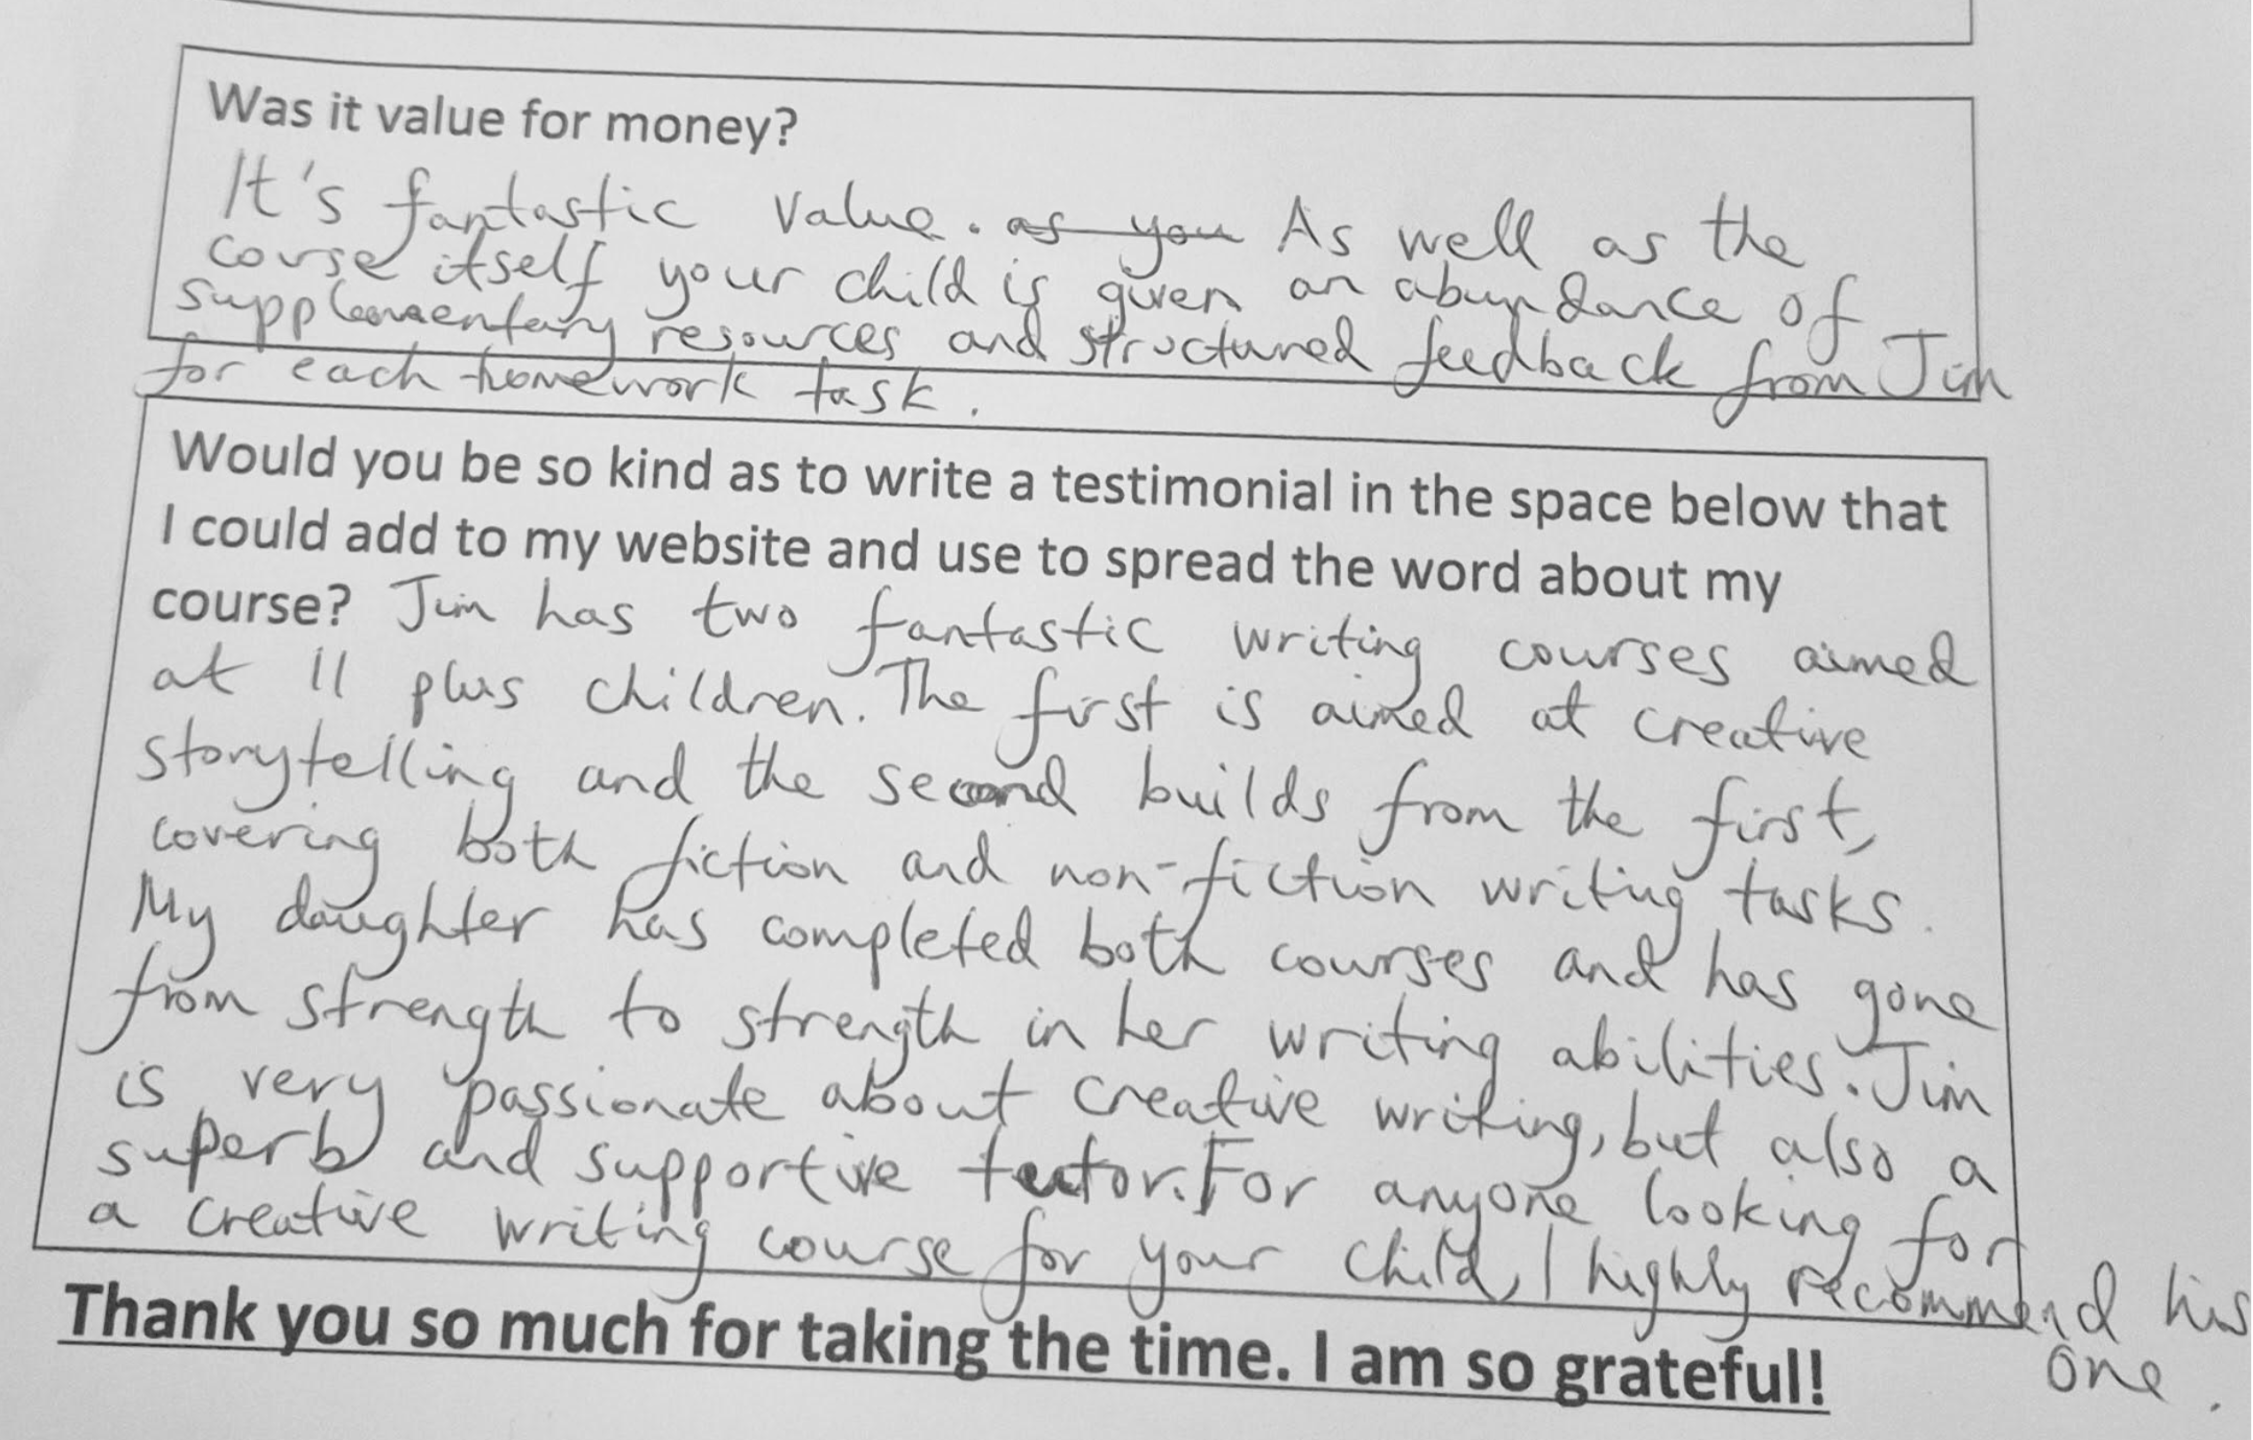 Was it value for money?
It's fantastic value. as you As well as the
course itself your child is given an abundance of
supplementary resources and structured feedback from Jim
for each homework task.
Would you be so kind as to write a testimonial in the space below that
I could add to my website and use to spread the word about my
course? Jim has two fantastic writing courses aimed
at 11 plus children. The first is aimed at creative
storytelling and the second builds from the first,
covering both fiction and non-fiction writing tasks.
My daughter has completed both courses and has gone
from strength to strength in her writing abilities. Jim
is very passionate about creative writing, but also a
superb and supportive tutor. For anyone looking for
a creative writing course for your child, I highly recommend his
one.
Thank you so much for taking the time. I am so grateful!